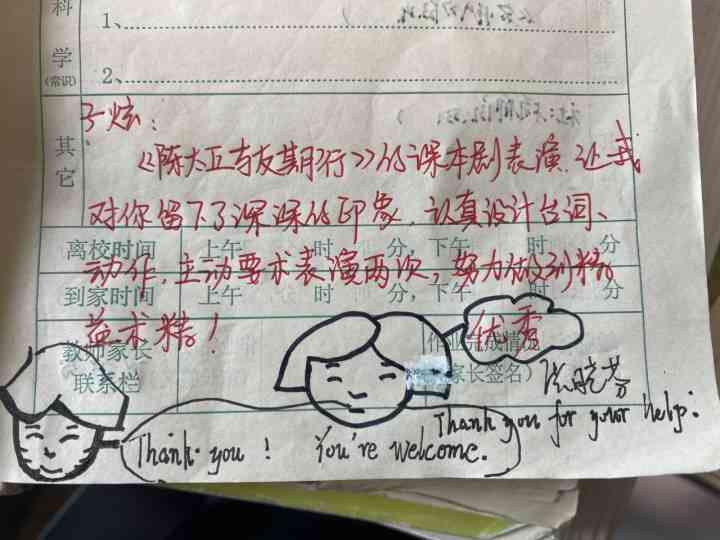 科
学
(常识)
1、
2、
其
它
子炫：
《陈太丘与友期行》的课本剧表演，让我
对你留下了深深的印象，认真设计台词、
离校时间 上午 时 分，下午 时 分
动作，主动要求表演两次，努力做到精
到家时间 上午 时 分，下午 时 分
益求精！
优秀
教师家长
联系栏
(作业完成情况
家长签名)
Thank you for your help:
Thank you! You're welcome.